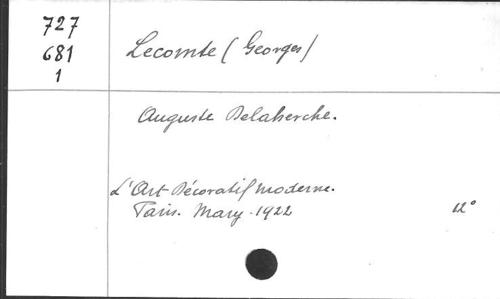 727
681
1
Lecomte (Georges)
Auguste Delaherche.
L'Art Décoratif moderne.
Paris. Mary. 1922
12°